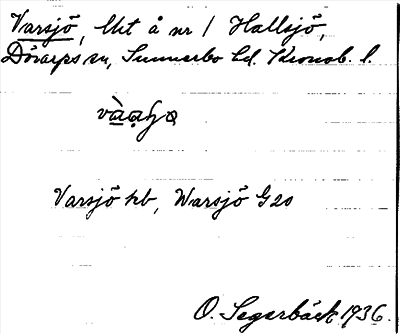 Varsjö, lht å nr 1 Hallsjö,
Dörarps sn, Sunnerbo hd. Kronob. l.
Varsjö hb, Warsjö G20
O. Segerbäck 1936.